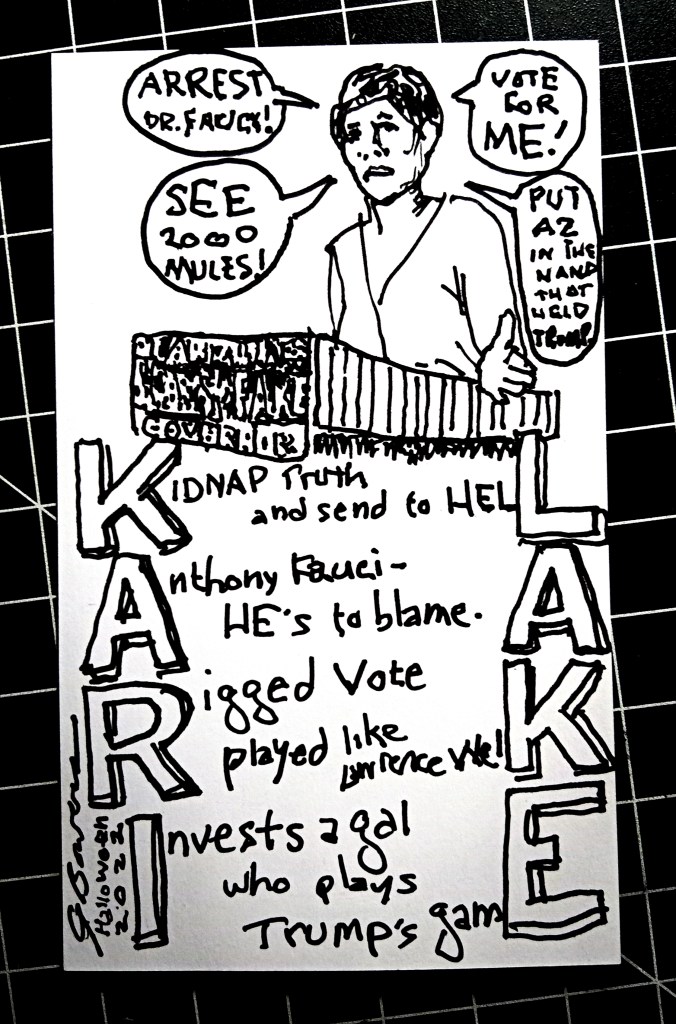 ARREST
DR. FAUCI!
VOTE
FOR
ME!
SEE
2000
MULES!
PUT
AZ
IN THE
HAND
THAT
HELD
TRUMP.
FAKE
COVERAGE
KIDNAP Truth
and send to HELL
Anthony Fauci-
HE's to blame.
A
Rigged Vote
played like
Lawrence Wel
K
Invests a gal
who plays
Trump's game
Halloween
2022